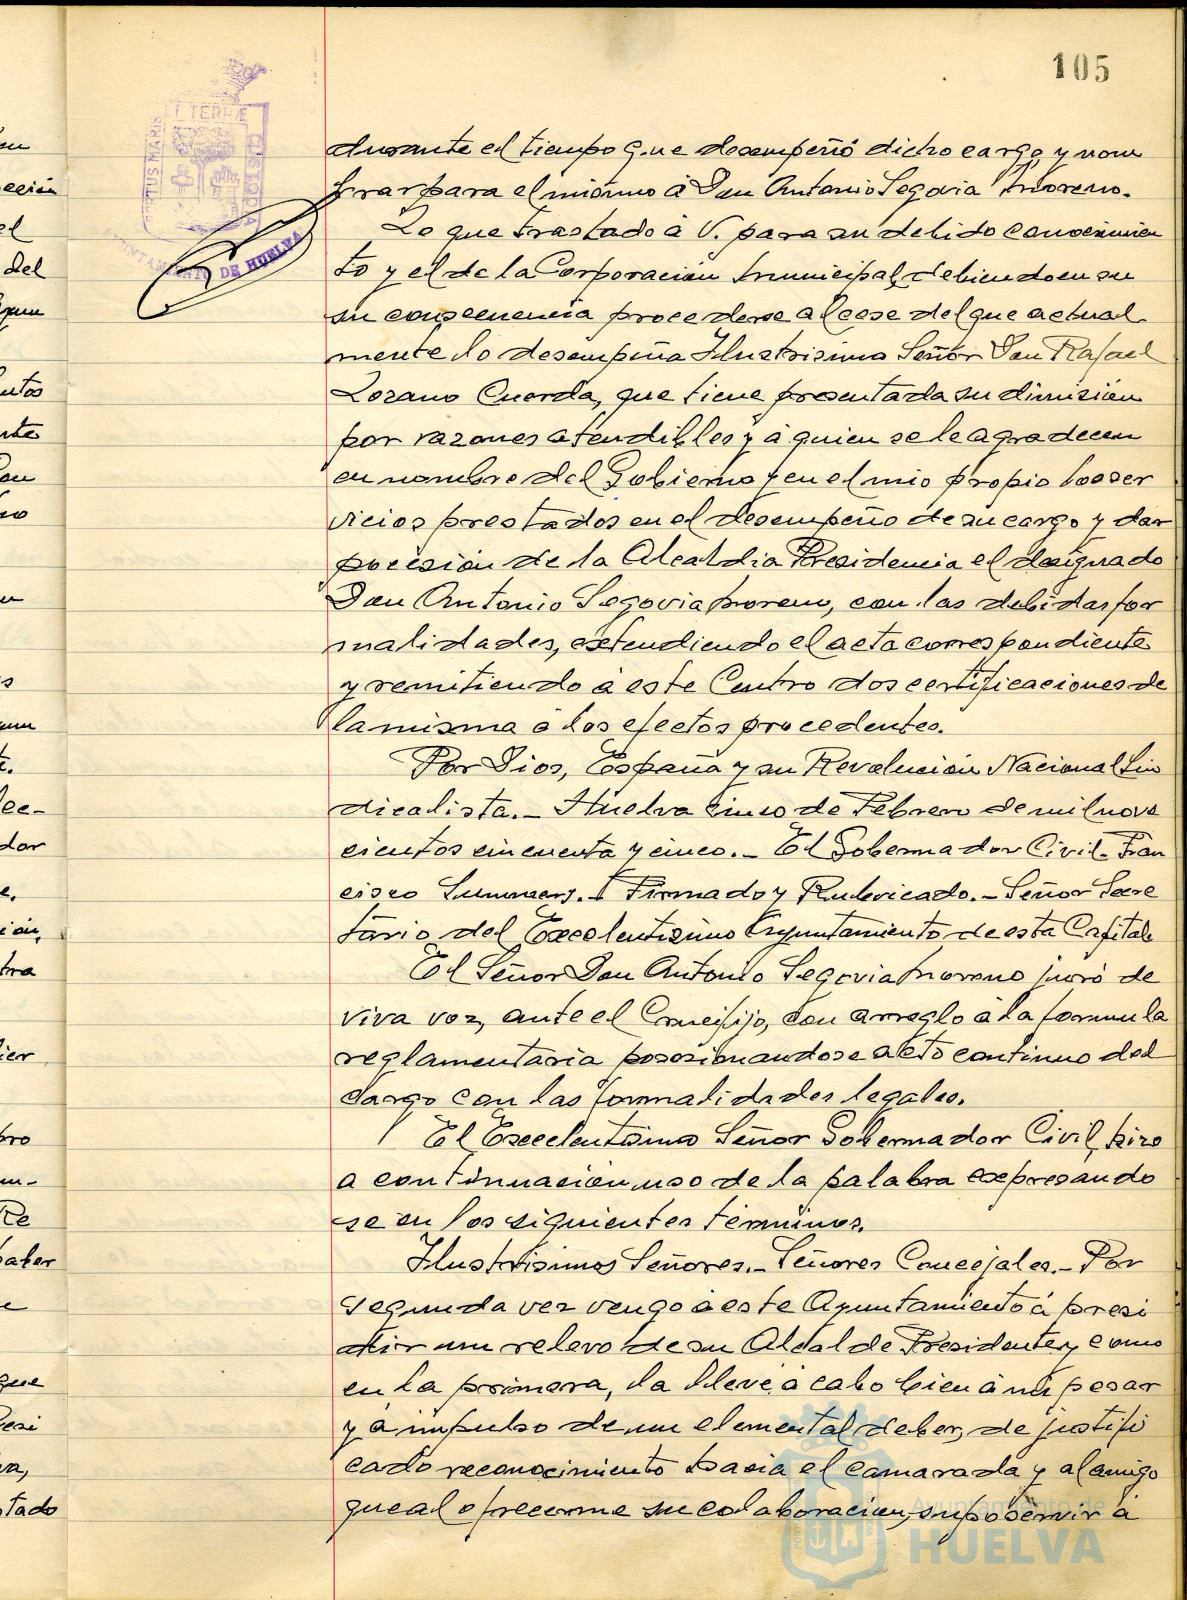 105
durante el tiempo que desempeñó dicho cargo, y nom
brar para el mismo á Don Antonio Segovia Moreno.
Lo que traslado á V. para su debido conocimien
to y el de la Corporación Municipal, debiendo en su
su consecuencia procederse al cese del que actual
mente lo desempeña Ilustrisimo Señor Don Rafael
Lozano Cuerda, que tiene presentada su dimisión
por razones atendibles y á quien se le agradecen
en nombre del Gobierno y en el mio propio los ser
vicios prestados en el desempeño de su cargo y dar
posesión de la Alcaldia Presidencia el designado
Don Antonio Segovia Moreno, con las debidas for
malidades, extendiendo el acta correspondiente
y remitiendo á este Centro dos certificaciones de
la misma a los efectos procedentes.
Por Dios, España y su Revolución Nacional Sin
dicalista.- Huelva cinco de Febrero de mil nove
cientos cincuenta y cinco.- El Gobernador Civil- Fran
cisco Summers.- Firmado y Rubricado.- Señor Secre
tario del Excelentisimo Ayuntamiento de esta Capital.
El Señor Don Antonio Segovia Moreno juró de
viva voz, ante el Crucifijo, con arreglo á la formula
reglamentaria posesionandose acto continuo del
cargo con las formalidades legales.
El Excelentisimo Señor Gobernador Civil, hizo
a continuación uso de la palabra expresando
se en los siguientes términos.
Ilustrisimos Señores.- Señores Concejales.- Por
segunda vez vengo á este Ayuntamiento á presi
dir un relevo de su Alcalde Presidente y, como
en la primera, la llevé á cabo bien á mi pesar
y á impulso de un elemental deber, de justifi
cado reconocimiento hacia el camarada y al amigo
que al ofrecerme su colaboración, supo servir á
ET TERRÆ
AYUNTAMIENTO DE HUELVA
Ayuntamiento de
HUELVA